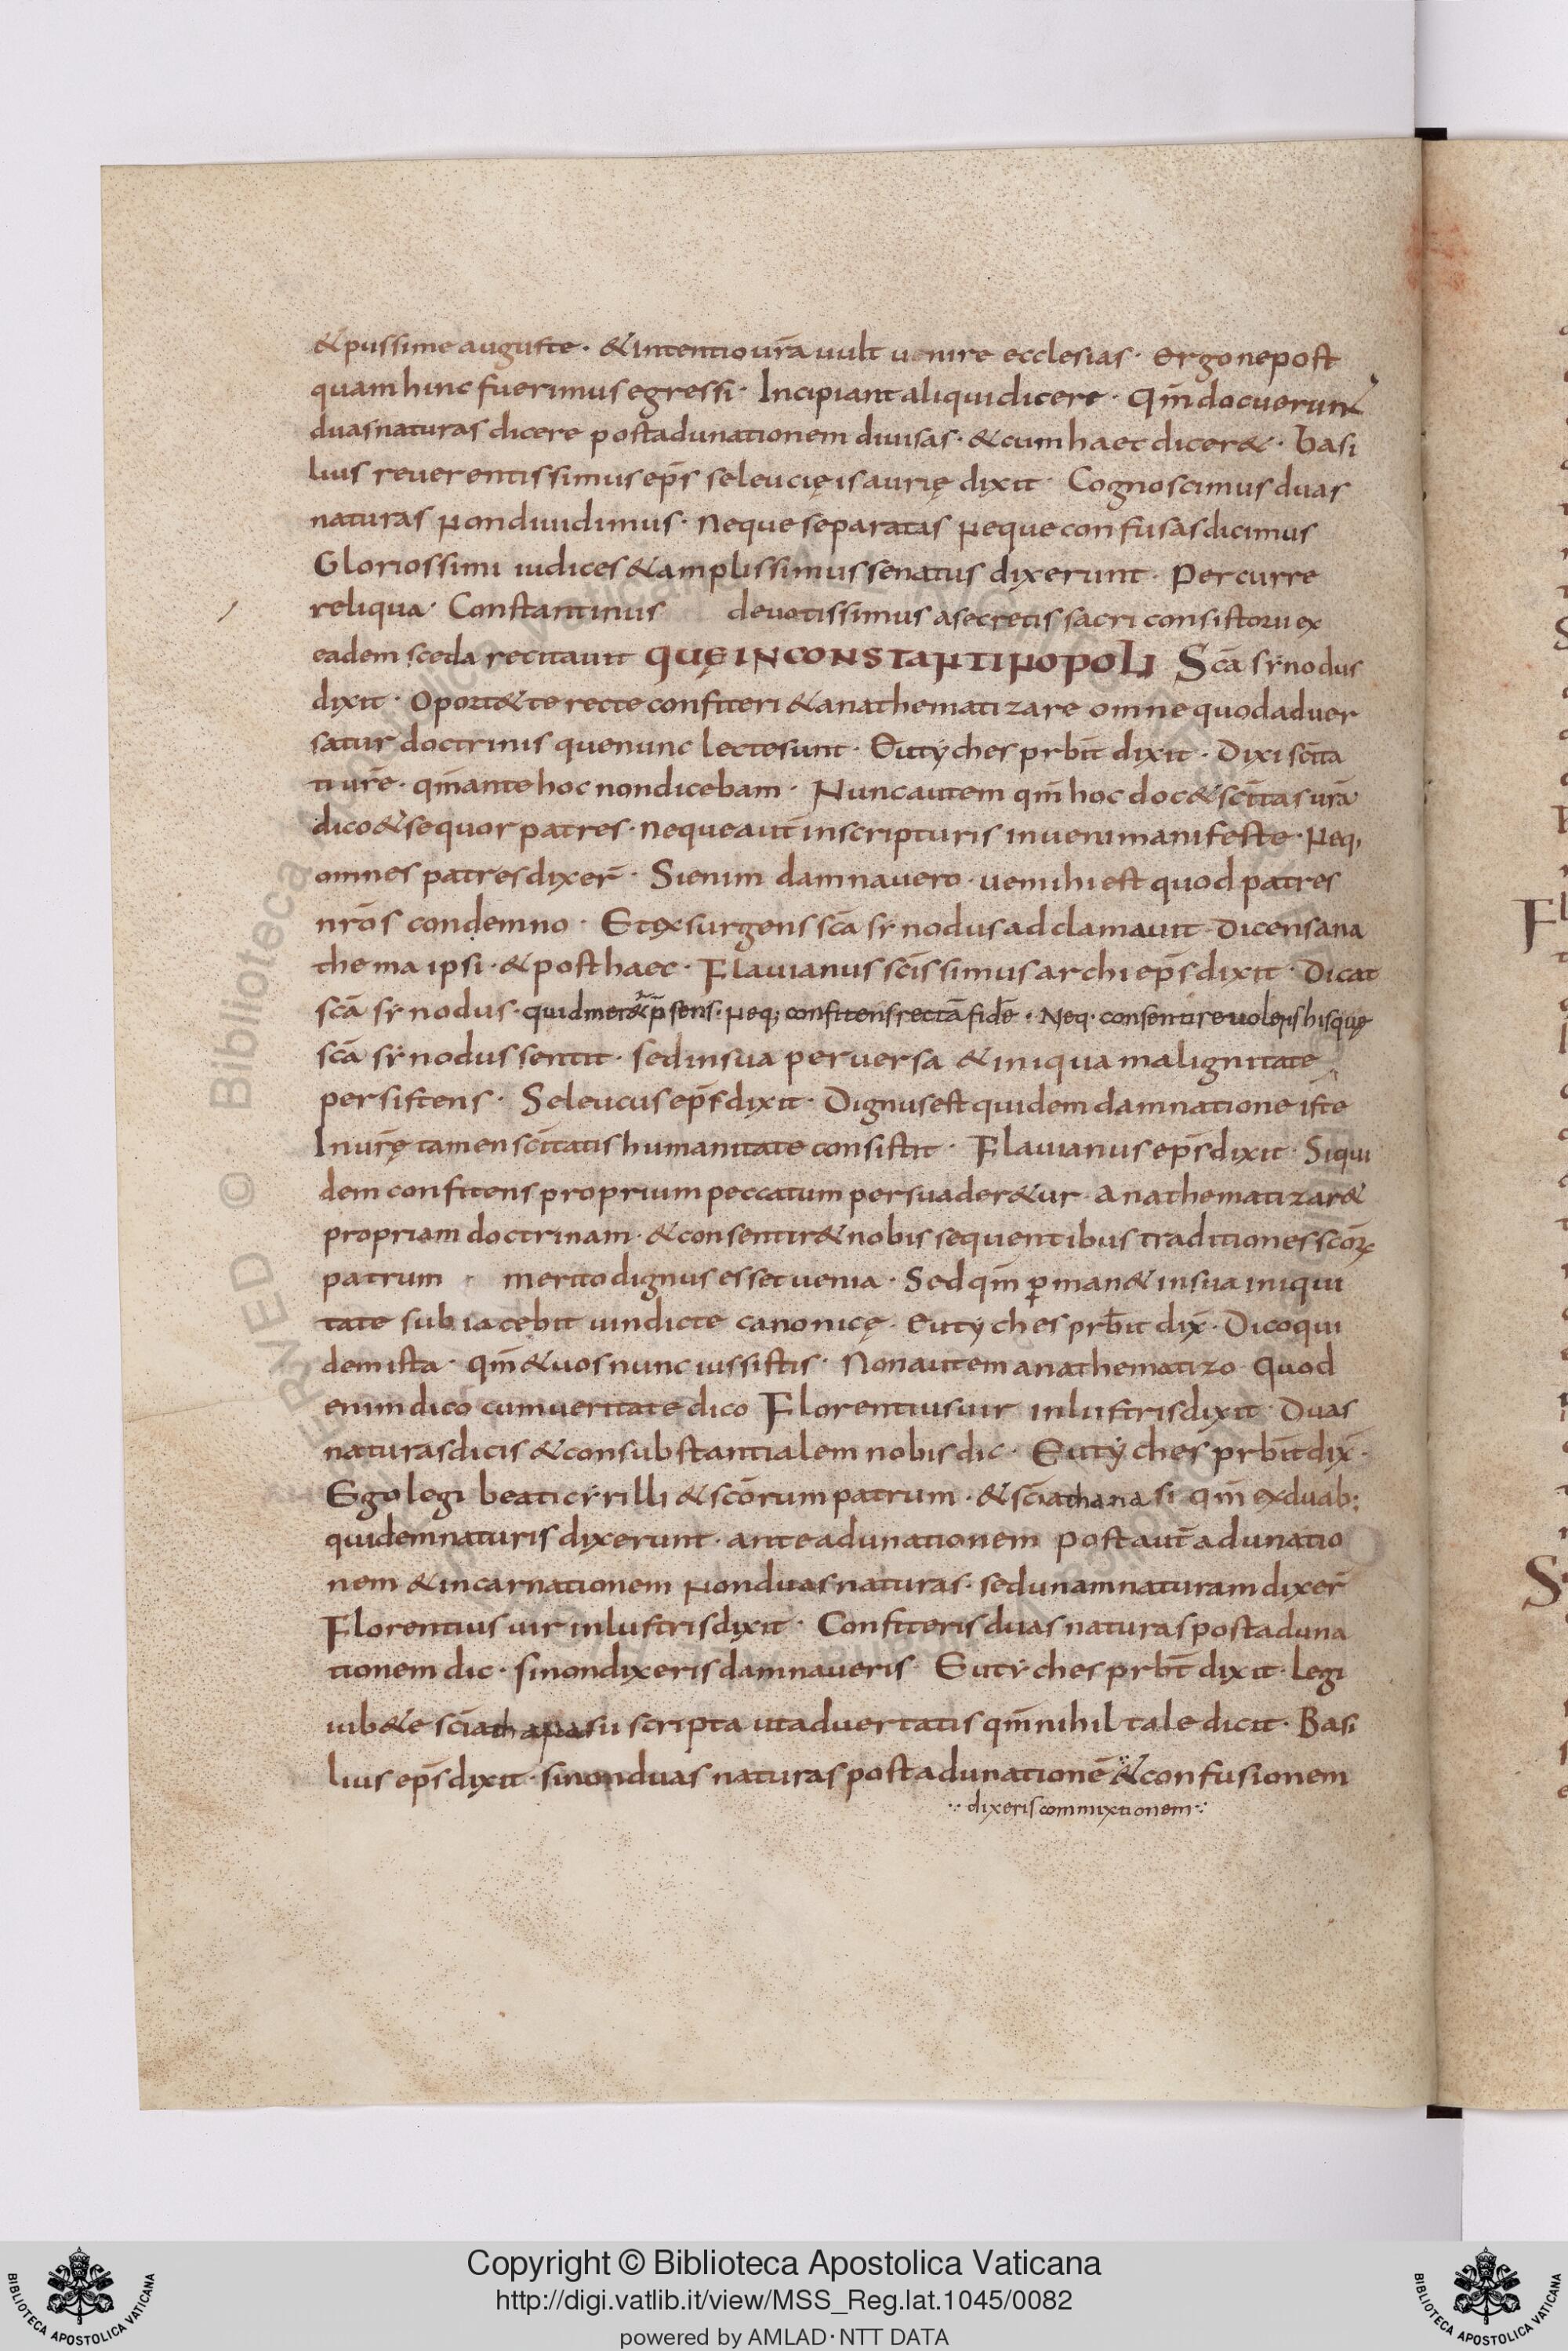 & piissime auguste · & intentio ur̄a uult uenire ecclesias · ergo ne post
quam hinc fuerimus egressi · Incipiant aliqui dicere · Qm̄ docuerunt
duas naturas dicere post adunationem diuisas · & cum haec dicer& · basi
lius reuerentissimus ep̄s seleucię isaurię dixit · Cognoscimus duas
naturas non diuidimus · Neque separatas neque confusas dicimus
Gloriossimi iudices & amplissimus senatus dixerunt · Percurre
reliqua · Constantinus deuotissimus a secretis sacri consistorii ex
eadem sceda recitauit QUĘ IN CONSTANTINOPOLI Sc̄a sẏnodus
dixit · Oport& te recte confiteri & anathematizare omne quod aduer
satur doctrinis que nunc lecte sunt · Eutẏches prb̄it dixit · Dixi sc̄ita
ti ur̄e · qm̄ ante hoc non dicebam · Nunc autem qm̄ hoc doc& sc̄itas ur̄a
dico & sequor patres · Neque aut̄ in scripturis inueni manifeste · Neq;
omnes patres dixer̄ · Si enim damnauero · ue mihi est quod patres
nr̄os condemno · Et exsurgens sc̄a sẏnodus adclamauit · Dicens ana
thema ipsi · & post haec · Flauianus sc̄issimus archiep̄s dixit · Dicat
sc̄a sẏnodus · quid mer&ur p̄sens · Neq; confitens rectā fidē · Neq · consentire uolens his quę
sc̄a sẏnodus sentit · sed in sua peruersa & iniqua malignitate
persistens · Seleucus ep̄s dixit · Dignus est quidem damnatione iste
In ur̄ę tamen sc̄itatis humanitate consistit · Flauianus ep̄s dixit · Siqui
dem confitens proprium peccatum persuader&ur · Anathematizar&
propriam doctrinam · & consentir& nobis sequentibus traditiones sc̄oꝝ
patrum · merito dignus esset uenia · Sed qm̄ ꝑman& in sua iniqui
tate subiacebit uindicte canonicę · Eutẏches prb̄it dix̄ · Dico qui
dem ista · qm̄ & uos nunc iussistis · Non autem anathematizo · Quod
enim dico cum ueritate dico Florentius uir inlustris dixit · Duas
naturas dicis & consubstantialem nobis dic · Eutẏches prb̄it dix̄ ·
Ego legi beati cẏrilli & sc̄orum patrum · & sc̄i athanasi qm̄ ex duab;
quidem naturis dixerunt · ante adunationem post aut̄ adunatio
nem & incarnationem non duas naturas · sed unam naturam dixer̄
Florentius uir inlustris dixit · Confiteris duas naturas post aduna
tionem dic · si non dixeris damnaueris · Eutẏches prb̄t dixit · Legi
iub&e sc̄i athanasii scripta ut aduertatis qm̄ nihil tale dicit · Basi
lius ep̄s dixit · si non duas naturas post adunationē & confusionem
·: dixeris commixtionem ·:
Copyright © Biblioteca Apostolica Vaticana
http://digi.vatlib.it/view/MSS_Reg.lat.1045/0082
powered by AMLAD·NTT DATA
BIBLIOTECA APOSTOLICA VATICANA
BIBLIOTECA APOSTOLICA VATICANA